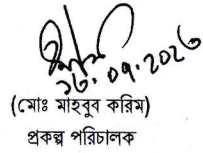 ১৬.০৭.২০২৩
(মোঃ মাহবুব করিম)
প্রকল্প পরিচালক